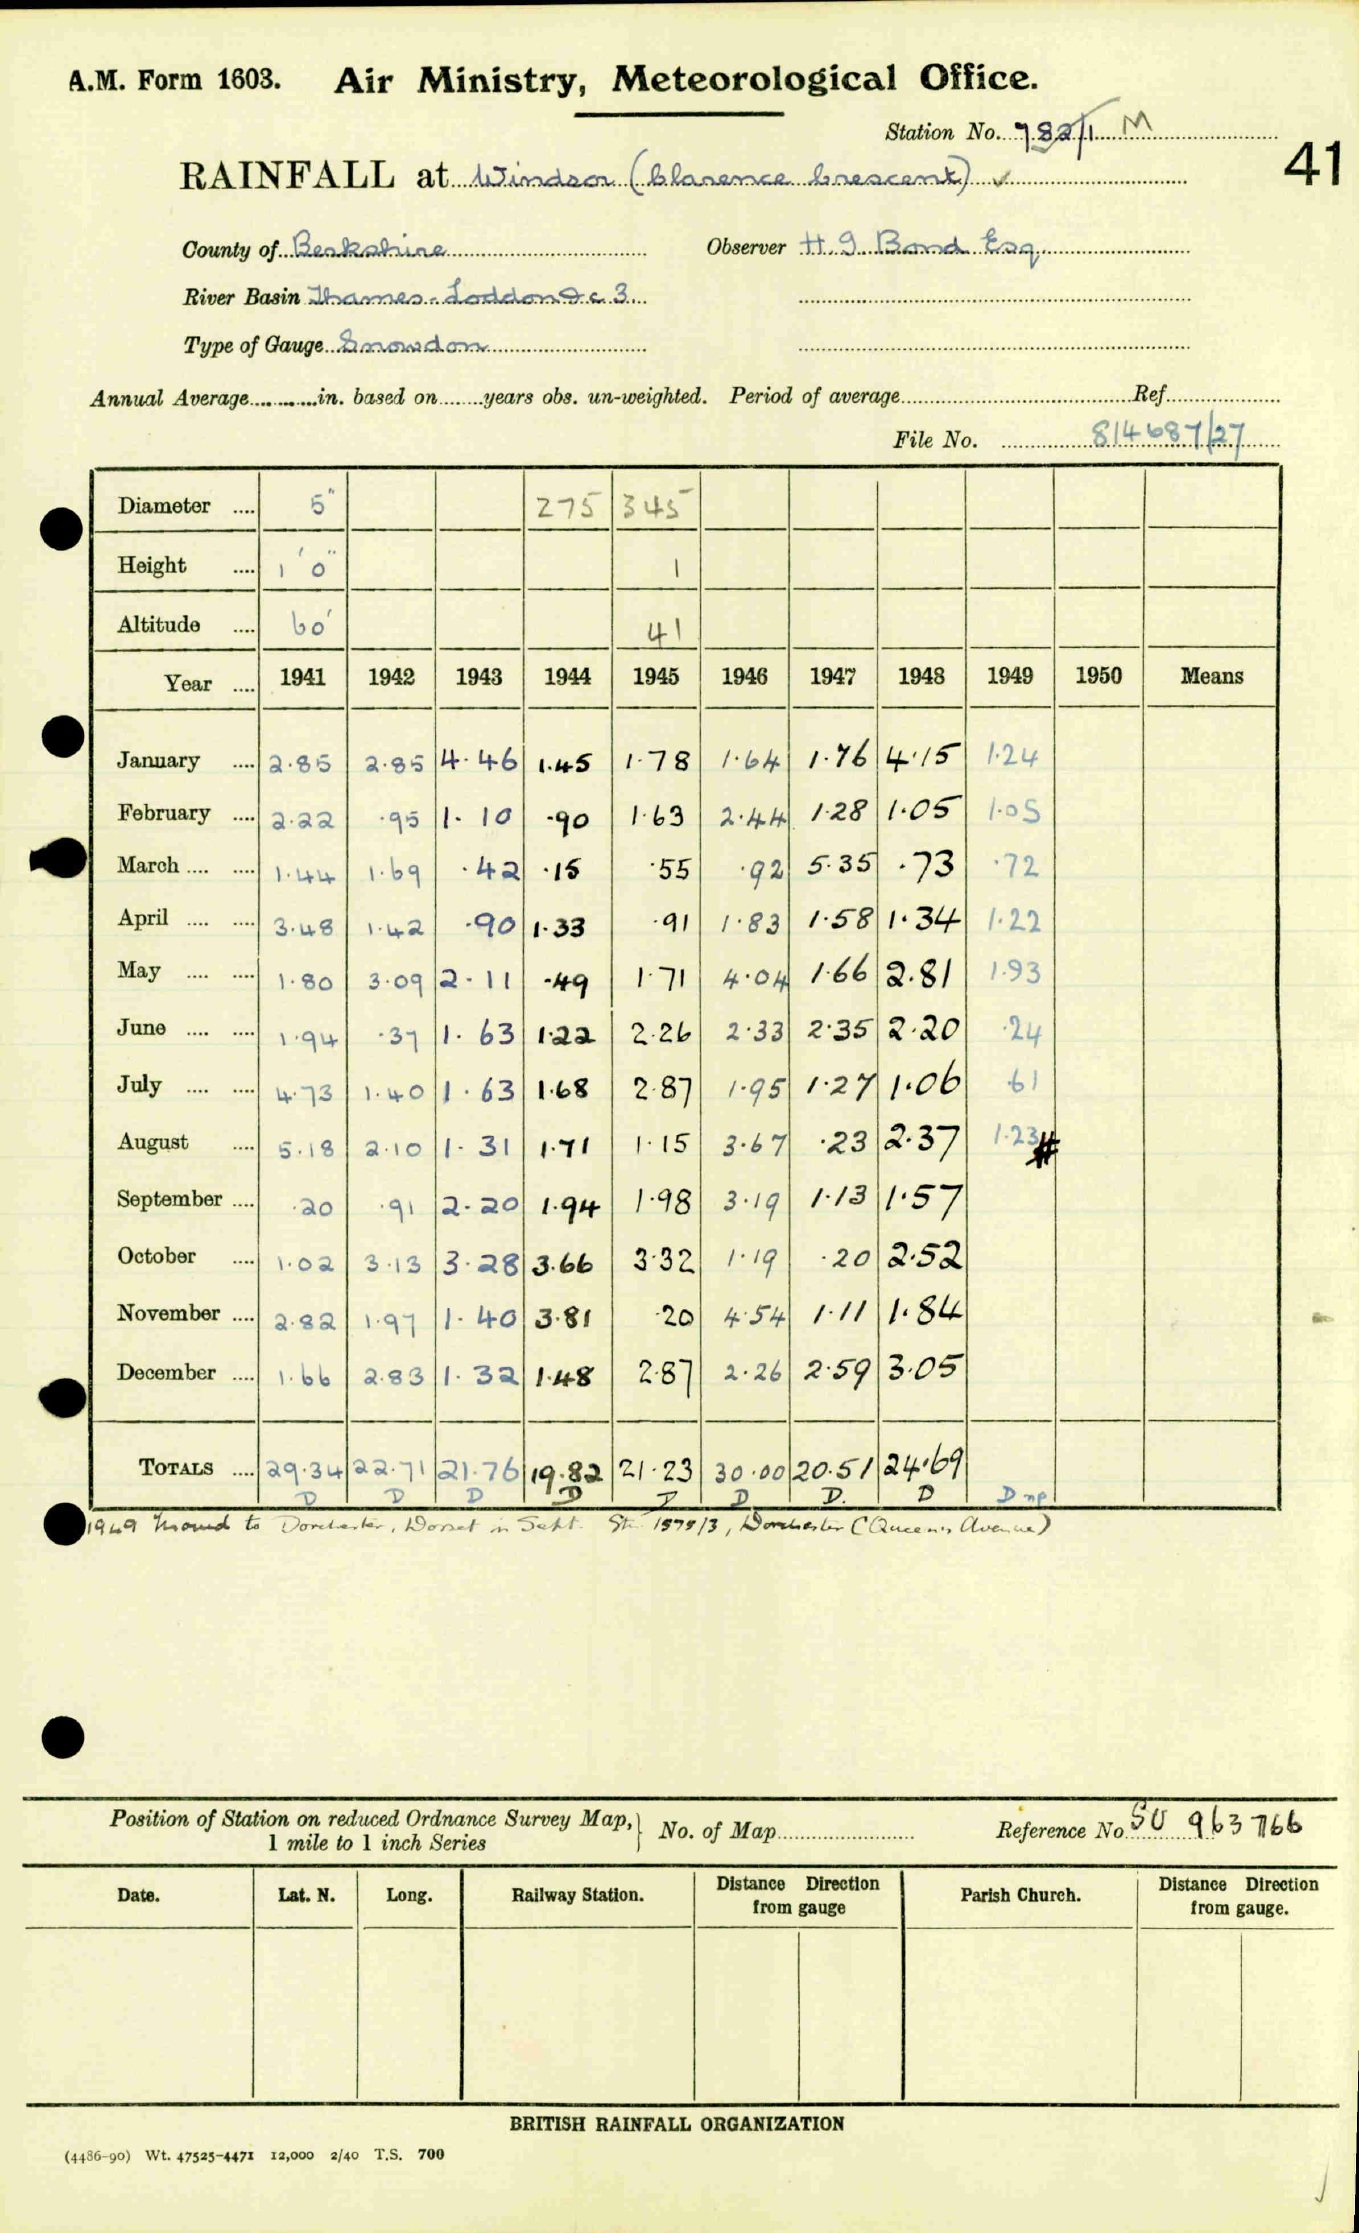 A.M. Form 1603. Air Ministry, Meteorological Office.
Station No. 782/1 M
41
RAINFALL at Windsor (Clarence Crescent) ✓
County of Berkshire Observer H. G. Bond Esq
River Basin Thames - Loddon &c 3
Type of Gauge Snowdon
Annual Average..........in. based on.......years obs. un-weighted. Period of average.......... Ref..........
File No. 814687/27
Diameter .... 5" 275 345
Height .... 1' 0" 1
Altitude .... 60' 41
Year .... 1941 1942 1943 1944 1945 1946 1947 1948 1949 1950 Means
January .... 2.85 2.85 4.46 1.45 1.78 1.64 1.76 4.15 1.24
February .... 2.22 .95 1.10 .90 1.63 2.44 1.28 1.05 1.05
March .... .... 1.44 1.69 .42 .15 .55 .92 5.35 .73 .72
April .... .... 3.48 1.42 .90 1.33 .91 1.83 1.58 1.34 1.22
May .... .... 1.80 3.09 2.11 .49 1.71 4.04 1.66 2.81 1.93
June .... .... 1.94 .37 1.63 1.22 2.26 2.33 2.35 2.20 .24
July .... .... 4.73 1.40 1.63 1.68 2.87 1.95 1.27 1.06 61
August .... 5.18 2.10 1.31 1.71 1.15 3.67 .23 2.37 1.23 #
September .... .20 .91 2.20 1.94 1.98 3.19 1.13 1.57
October .... 1.02 3.13 3.28 3.66 3.32 1.19 .20 2.52
November .... 2.82 1.97 1.40 3.81 .20 4.54 1.11 1.84
December .... 1.66 2.83 1.32 1.48 2.87 2.26 2.59 3.05
TOTALS .... 29.34 22.71 21.76 19.82 21.23 30.00 20.51 24.69
D D D D D D D. D D np
1949 Moved to Dorchester, Dorset in Sept. Stn 1575/3, Dorchester (Queen's Avenue)
Position of Station on reduced Ordnance Survey Map,
1 mile to 1 inch Series } No. of Map.......... Reference No. SU 963 766
Date. Lat. N. Long. Railway Station. Distance Direction from gauge Parish Church. Distance Direction from gauge.
BRITISH RAINFALL ORGANIZATION
(4486-90) Wt. 47525-4471 12,000 2/40 T.S. 700